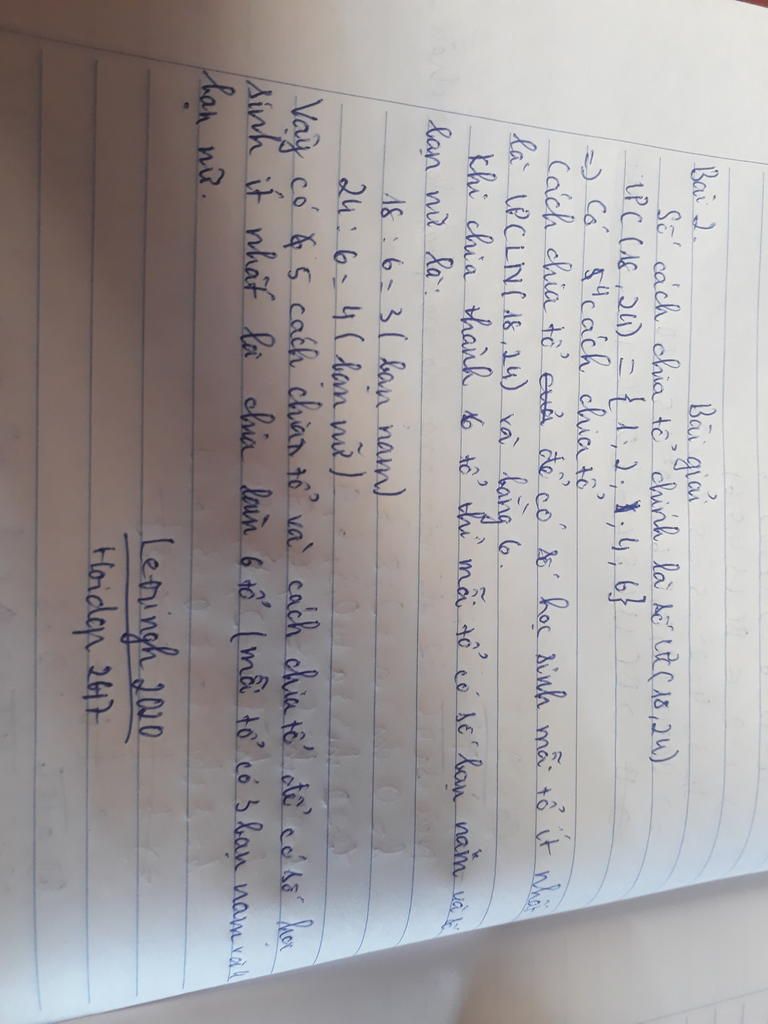 Bài 2.
Bài giải
Số cách chia tổ chính là số ƯC(18,24)
ƯC(18,24) = {1; 2; 4; 6}
=> Có 4 cách chia tổ
Cách chia tổ để có số học sinh mỗi tổ ít nhất
là ƯCLN(18,24) và bằng 6.
Khi chia thành 6 tổ thì mỗi tổ có số bạn nam và số
bạn nữ là:
18 : 6 = 3 (bạn nam)
24 : 6 = 4 (bạn nữ)
Vậy có 5 cách chia tổ và cách chia tổ để có số học
sinh ít nhất là chia làm 6 tổ (mỗi tổ có 3 bạn nam và 4
bạn nữ.
2020
Hoidap 247